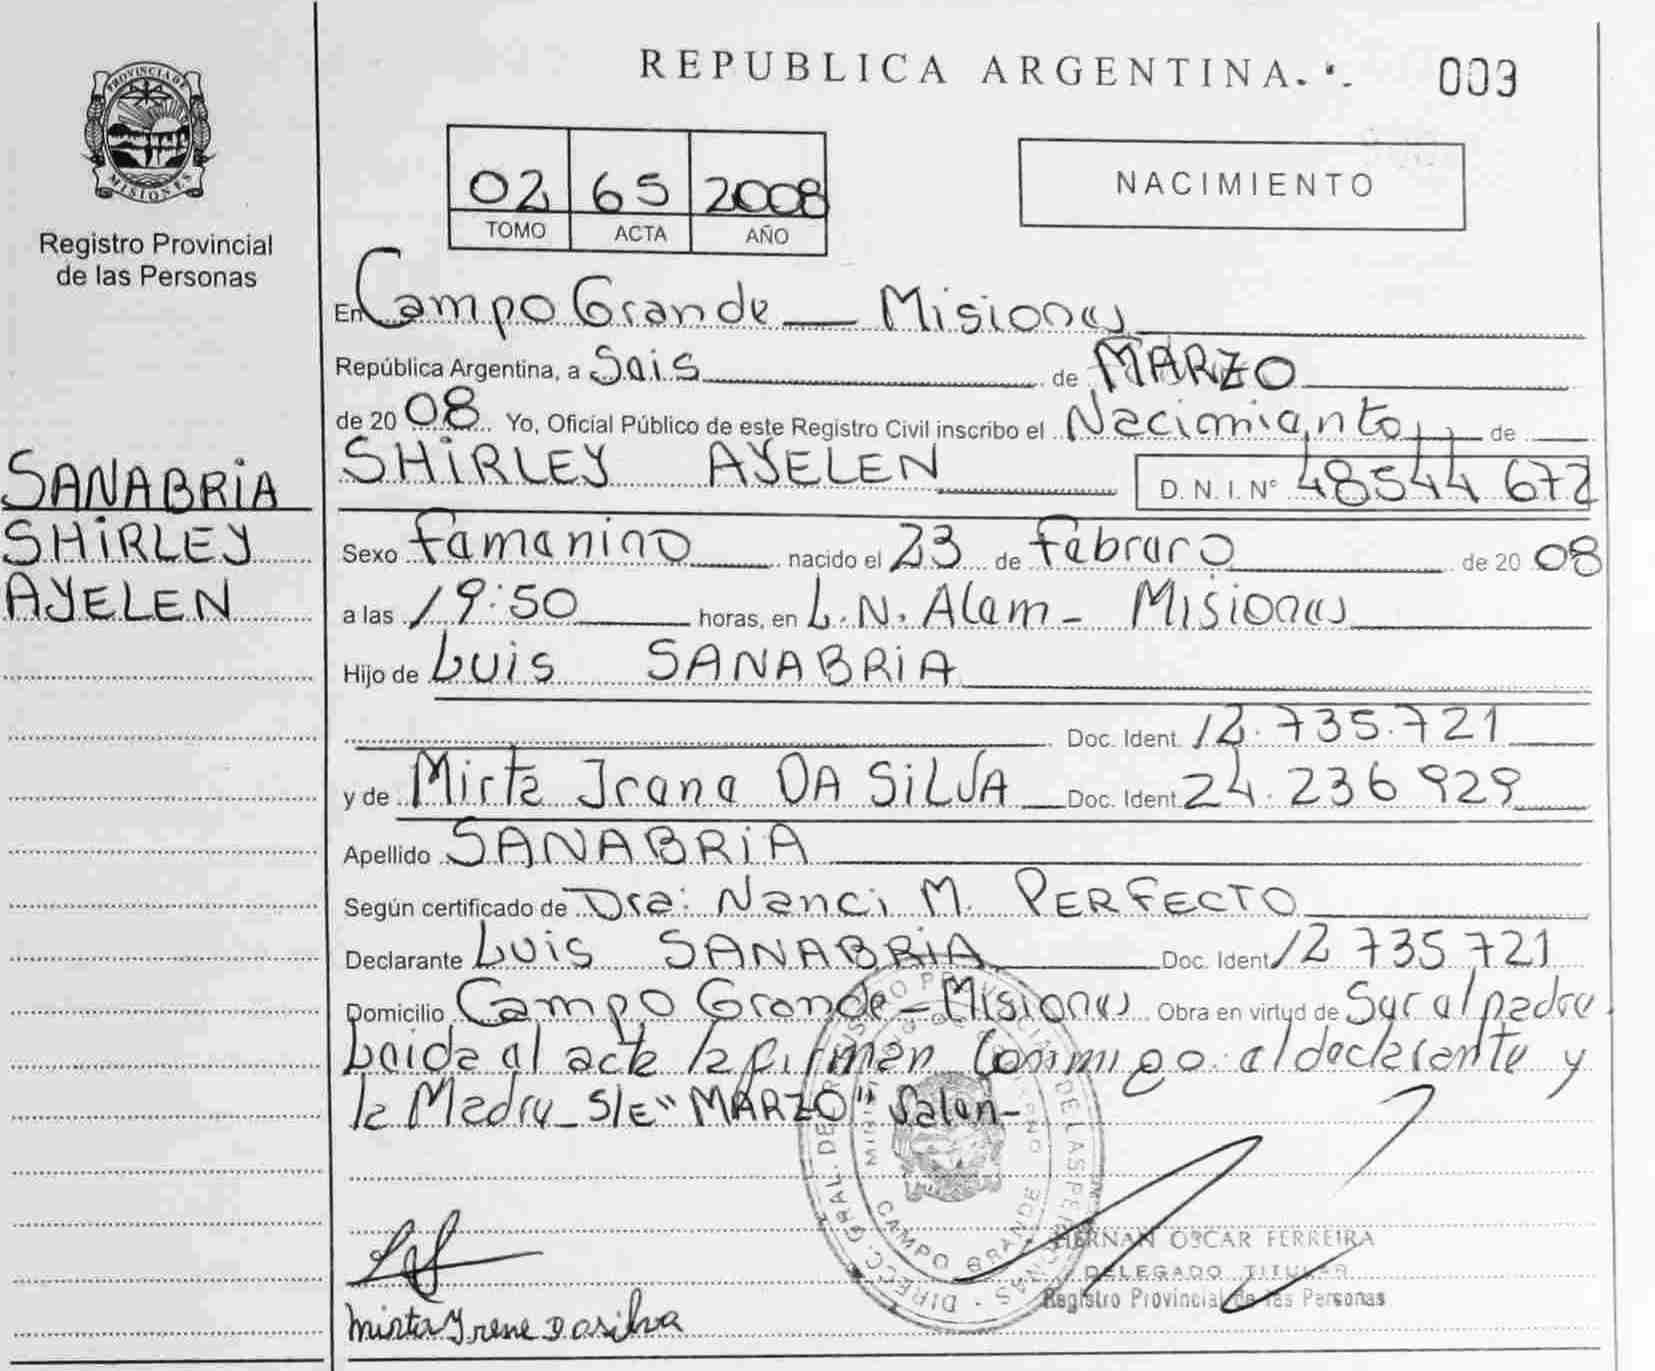 REPUBLICA ARGENTINA.
003
PROVINCIA DE MISIONES
Registro Provincial
de las Personas
02 65 2008
TOMO ACTA AÑO
NACIMIENTO
En Campo Grande — Misiones
República Argentina, a Seis de MARZO
de 20 08 Yo, Oficial Público de este Registro Civil inscribo el Nacimiento de
SHIRLEY AYELEN D. N. I. N° 48544 672
SANABRIA
SHIRLEY
AYELEN
Sexo femenino nacido el 23 de febrero de 20 08
a las 19:50 horas, en L. N. Alem - Misiones
Hijo de Luis SANABRIA
Doc. Ident. 12.735.721
y de Mirta Irene DA SILVA Doc. Ident 24.236 929
Apellido SANABRIA
Según certificado de Dra: Nanci M. PERFECTO
Declarante Luis SANABRIA Doc. Ident 12 735 721
Domicilio Campo Grande - Misiones Obra en virtud de Ser el padre
Leida el acta la firman Conmigo el declarante y
la Madre S/E "MARZO" Valen-
DIRECC. GRAL. DEL REGISTRO PROVINCIAL DE LAS PERSONAS
CAMPO GRANDE
HERNAN OSCAR FERREIRA
DELEGADO TITULAR
Registro Provincial de las Personas
Mirta Yrene Dasilva